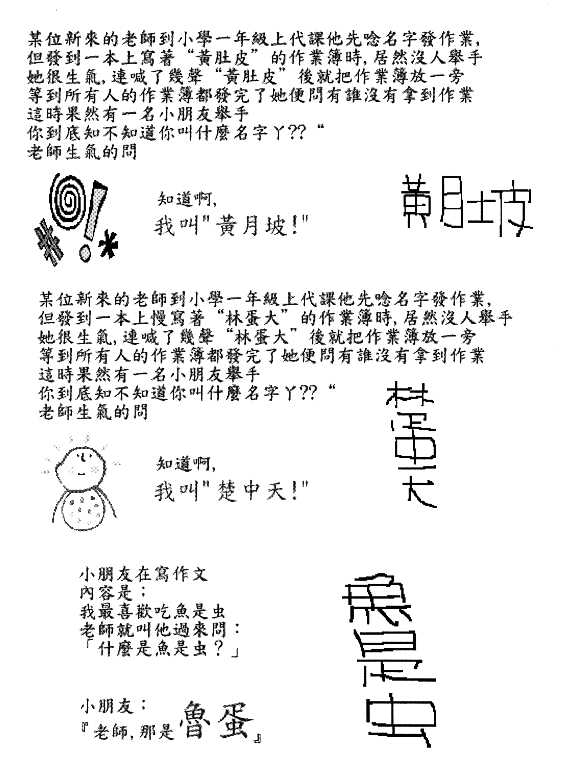 某位新來的老師到小學一年級上代課他先唸名字發作業,
但發到一本上寫著“黃肚皮”的作業簿時,居然沒人舉手
她很生氣,連喊了幾聲“黃肚皮”後就把作業簿放一旁
等到所有人的作業簿都發完了她便問有誰沒有拿到作業
這時果然有一名小朋友舉手
你到底知不知道你叫什麼名字ㄚ??“
老師生氣的問
知道啊,
我叫"黃月坡!"
黃月土皮
某位新來的老師到小學一年級上代課他先唸名字發作業,
但發到一本上慢寫著“林蛋大”的作業簿時,居然沒人舉手
她很生氣,連喊了幾聲“林蛋大”後就把作業簿放一旁
等到所有人的作業簿都發完了她便問有誰沒有拿到作業
這時果然有一名小朋友舉手
你到底知不知道你叫什麼名字ㄚ??“
老師生氣的問
知道啊,
我叫"楚中天!"
林蛋大
小朋友在寫作文
內容是;
我最喜歡吃魚是虫
老師就叫他過來問:
「什麼是魚是虫?」
小朋友:
『老師,那是魯蛋』
魚是虫